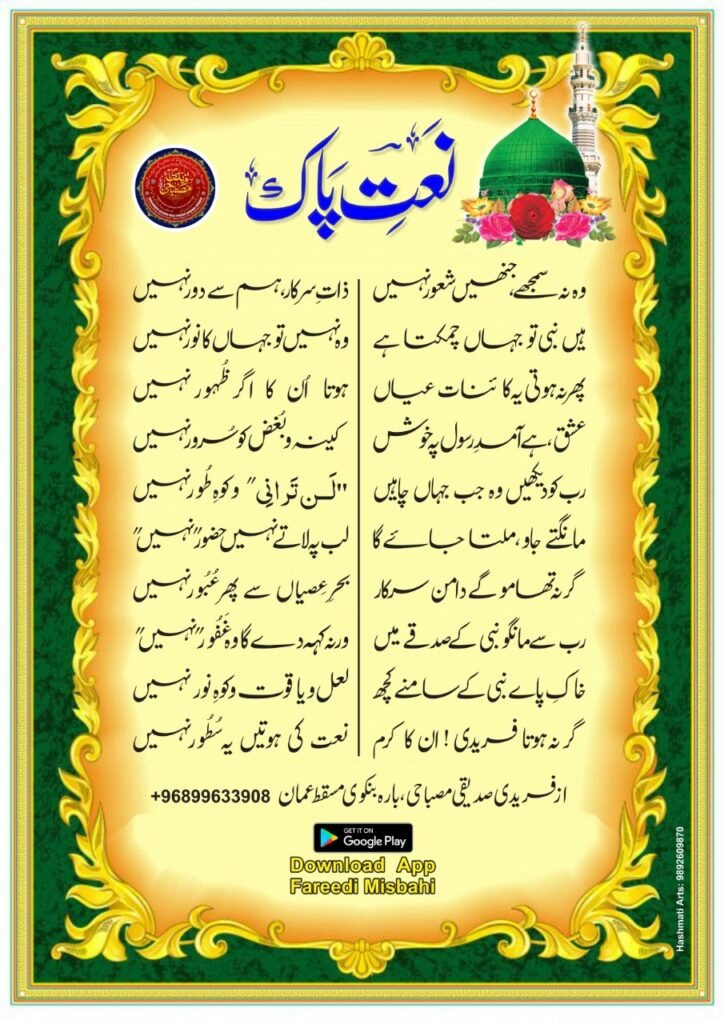 نعتِ پاک
وہ نہ سمجھے، جنھیں شعور نہیں ذاتِ سرکار، ہم سے دور نہیں
ہیں نبی تو جہاں چمکتا ہے وہ نہیں تو جہاں کا نور نہیں
پھر نہ ہوتی یہ کائنات عیاں ہوتا اُن کا اگر ظُہور نہیں
عشق، ہے آمدِ رسول پہ خوش کینہ و بُغض کو سُرور نہیں
رب کو دیکھیں وہ جب جہاں چاہیں "لَن تَرَانِی" و کوہِ طُور نہیں
مانگتے جاو، ملتا جائے گا لب پہ لاتے نہیں حضور "نہیں"
گر نہ تھامو گے دامن سرکار بحرِ عصیاں سے پھر عُبُور نہیں
رب سے مانگو نبی کے صدقے میں ورنہ کہہ دے گا وہ غَفُور "نہیں"
خاکِ پاے نبی کے سامنے کچھ لعل و یاقوت و کوہِ نور نہیں
گر نہ ہوتا فریدی! ان کا کرم نعت کی ہوتیں یہ سُطُور نہیں
از فریدی صدیقی مصباحی، بارہ بنکوی مسقط عمان +96899633908
GET IT ON
Google Play
Download App
Fareedi Misbahi
Hashmati Arts: 9892609870